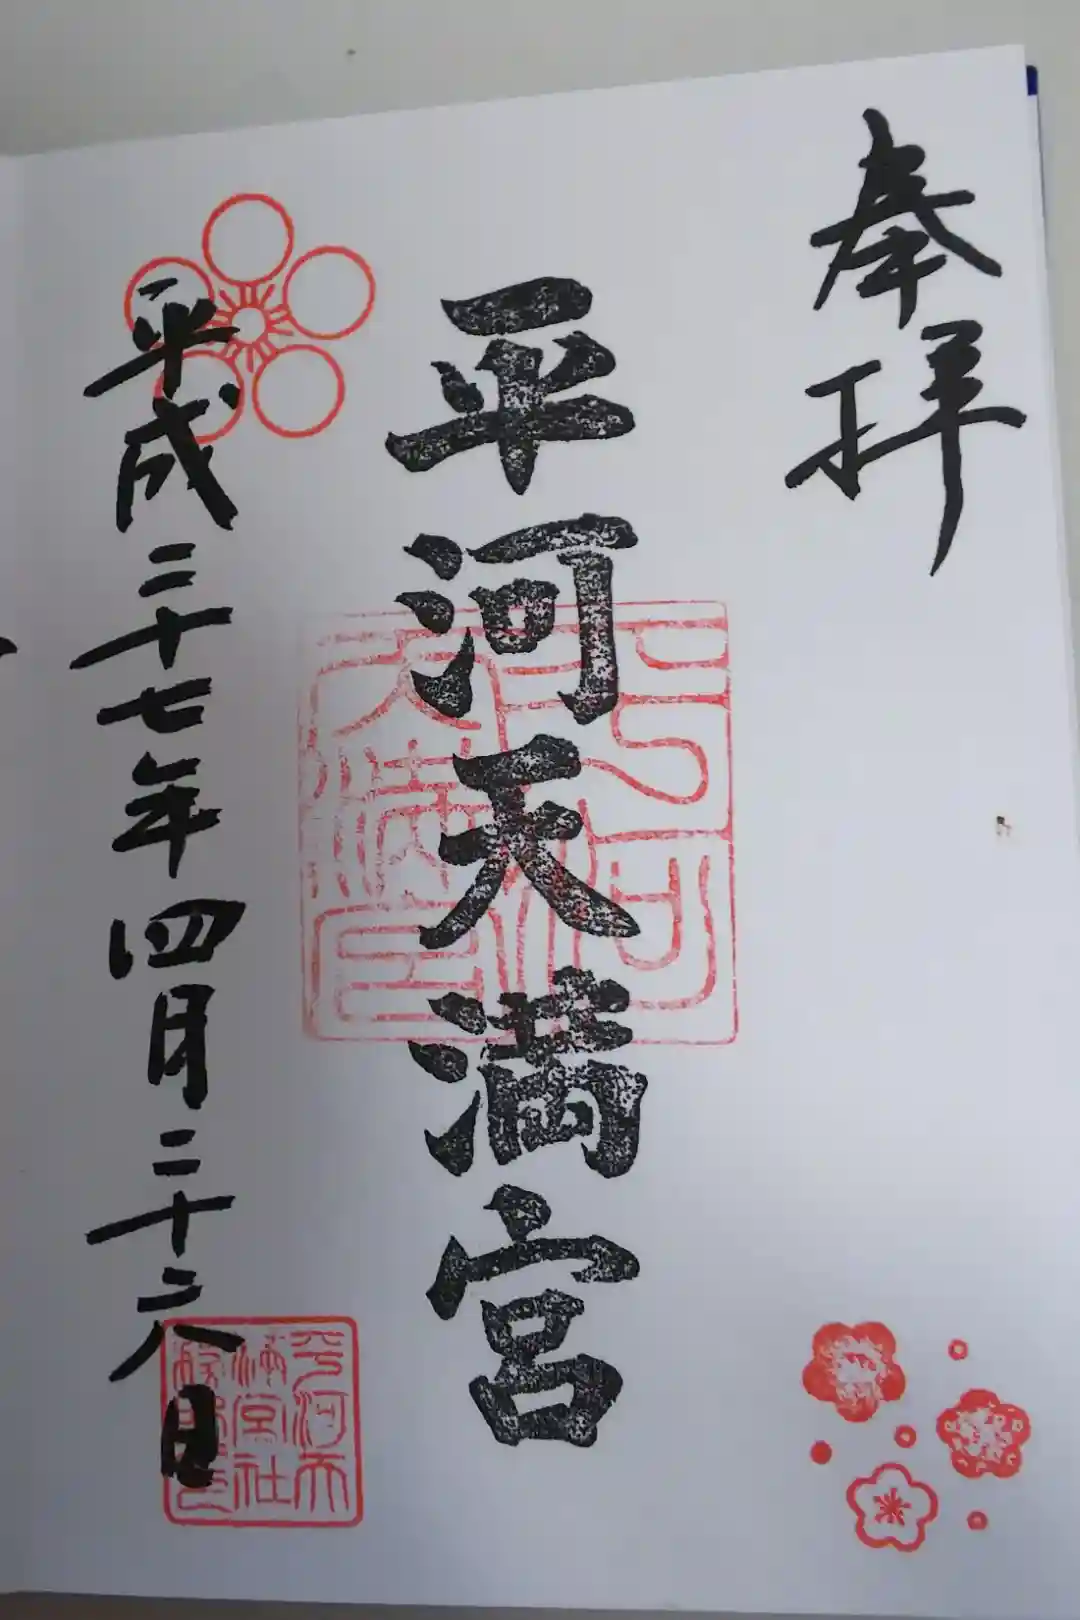 奉拝
平河天満宮
平河
天満宮
平成二十七年四月二十六日
平河天
満宮社
務所印